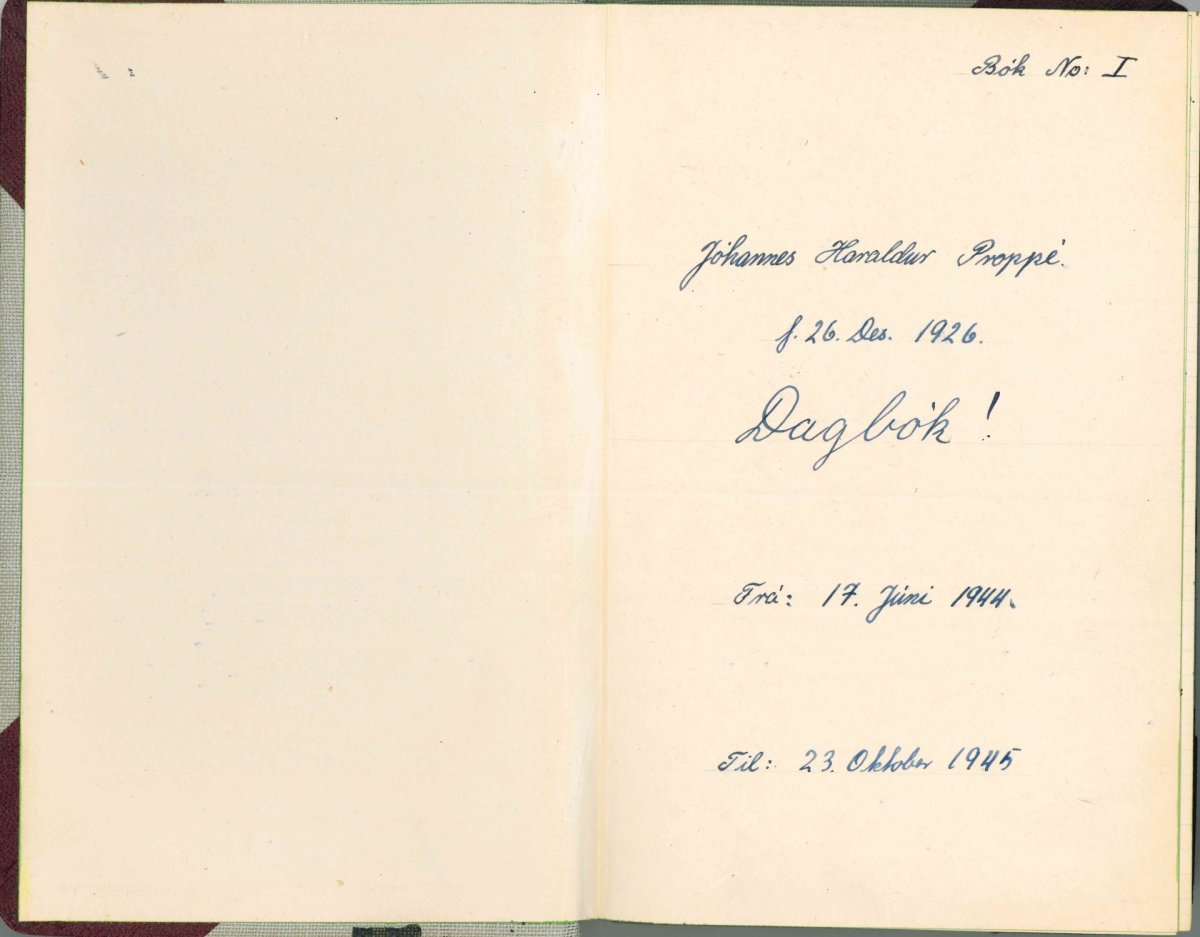 Bók No: I
Jóhannes Haraldur Proppé.
f. 26. Des. 1926.
Dagbók!
Frá: 17. Júní 1944.
Til: 23. Oktober 1945